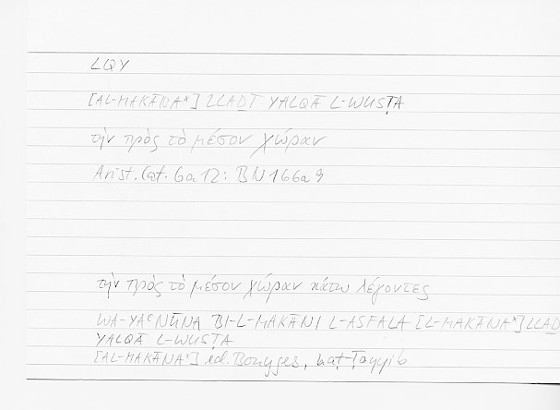 LQY
[AL-MAKĀNA*] LLAḎĪ YALQĀ L-WUSṬA
τὴν πρὸς τὸ μέσον χώραν
Arist. Cat. 6a12: BN 166a9
τὴν πρὸς τὸ μέσον χώραν κάτω λέγοντες
WA-YAʿNŪNA BI-L-MAKĀNI L-ASFALA [L-MAKĀNA*] LLAḎ
YALQĀ L-WUSṬA
[AL-MAKĀNA*] ed. Bouyges, Ṭayyib